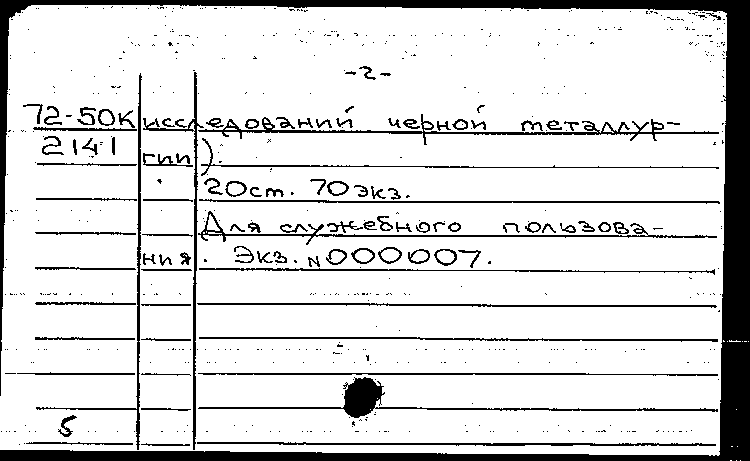 -2-
72-50К исследований черной металлур-
2141 гии).
20ст. 70экз.
Для служебного пользова-
ния. Экз. N000007.
5